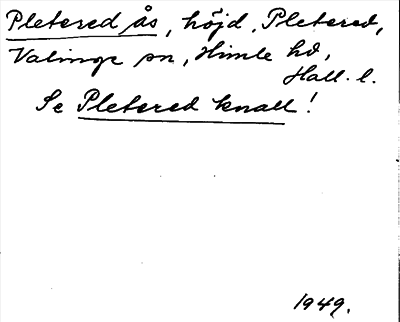 Pletered ås, höjd, Pletered,
Valinge sn, Himle hd,
Hall. l.
Se Pletered knall!
1949.